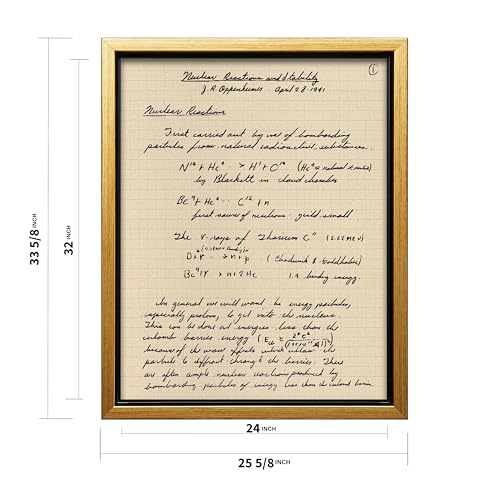 Nuclear Reactions and Stability
①
J. R. Oppenheimer April 28 1941
Nuclear Reactions
First carried out by use of bombarding
particles from natural radioactive substances.
N¹⁴ + He⁴ → H¹ + O¹⁴ (He⁴ = natural
by Blackett in cloud chamber
Be⁹ + He⁴ : C¹² + n
first source of neutrons - yield small
The γ-rays of Thorium C" (2.62 MeV)
D + γ → n + p (Chadwick & Goldhaber)
Be⁹ + γ → n + 2 He 1.9 binding energy.
In general we will want be energy particles,
especially protons, to get into the nucleus.
This can be done at energies less than the
coulomb barrier energy
because of the wave effects which allow the
particle to diffract through the barrier. There
are often ample nuclear reactions produced by
bombarding particles of energy less than the coulomb barrier.
33 5/8 INCH
32 INCH
24 INCH
25 5/8 INCH